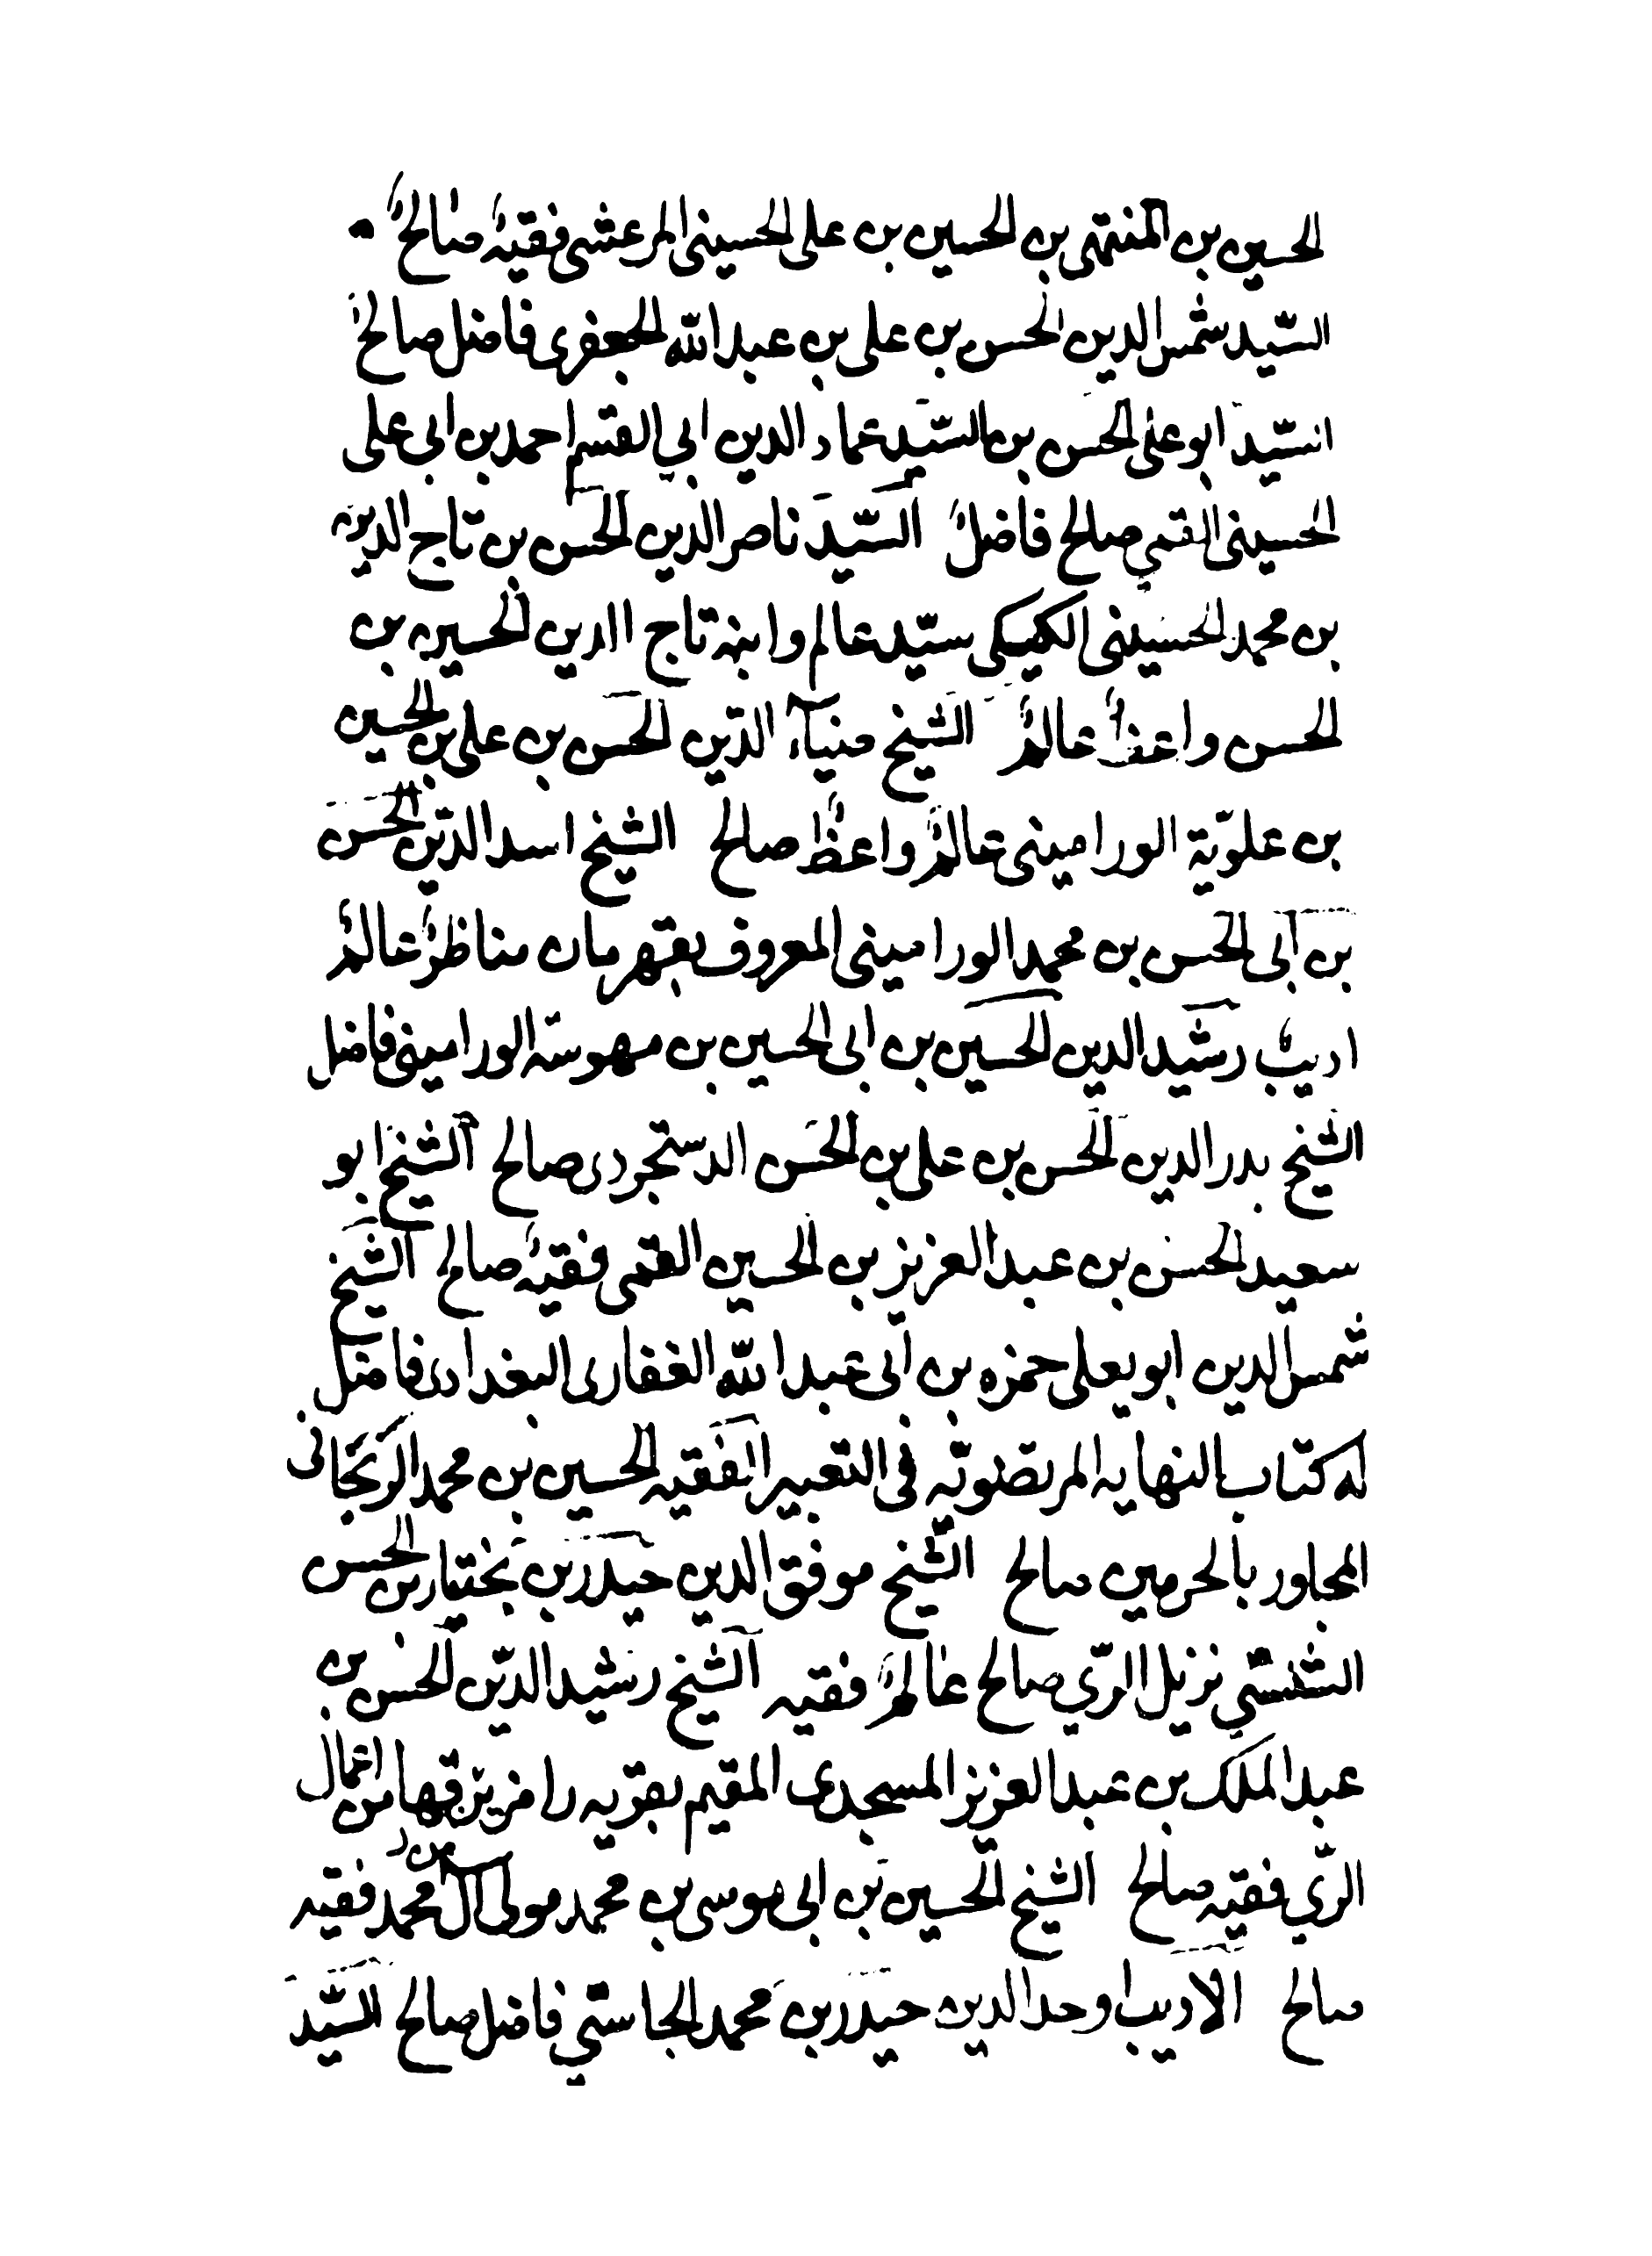 الحسين بن المنتهى بن الحسين بن على الحسينى المرعشى فقيه صالح
السّيد شمس الدين الحسن بن على بن عبد الله الجعفرى فاضل صالح
السّيد ابو على الحسن بن السّيد عماد الدين ابي القسم احمد بن ابى على
الحسينى القمي صالح فاضل السّيد ناصر الدين الحسن بن تاج الدين
بن محمد الحسينى الكيسكى سيّد عالم وابنه تاج الدين الحسين بن
الحسن واعظ عالم الشيخ ضياء الدّين الحسن بن على بن الحسين
بن علويّة الورامينى عالم واعظ صالح الشيخ اسد الدّين الحسن
بن ابى الحسن بن محمد الورامينى المعروف بقهرمان مناظر عالم
اديب رشيد الدين الحسين بن ابى الحسين بن مهوسة الورامينى فاضل
الشيخ بدر الدين الحسن بن على بن الحسن الدستجردى صالح الشيخ ابو
سعيد الحسن بن عبد العزيز بن الحسين القمى فقيه صالح الشيخ
شمس الدين ابو يعلى حمزه بن ابى عبد الله الغفارى البغدادى فاضل
له كتاب النهايه المرتضويّه فى التعبير الفقيه الحسين بن محمد الريحانى
المجاور بالحرمين صالح الشيخ موفق الدين حيدر بن بختيار بن الحسن
الششتي نزيل الرّي صالح عالم فقيه الشيخ رشيد الدّين الحسن بن
عبد الملك بن عبد العزيز المسجدى المقيم بقريه رامزين قها من اعمال
الرّي فقيه صالح الشيخ الحسين بن ابى موسى بن محمد مولى آل محمد فقيه
صالح الاديب اوحد الدين حيدر بن محمد الجاستي فاضل صالح السّيد